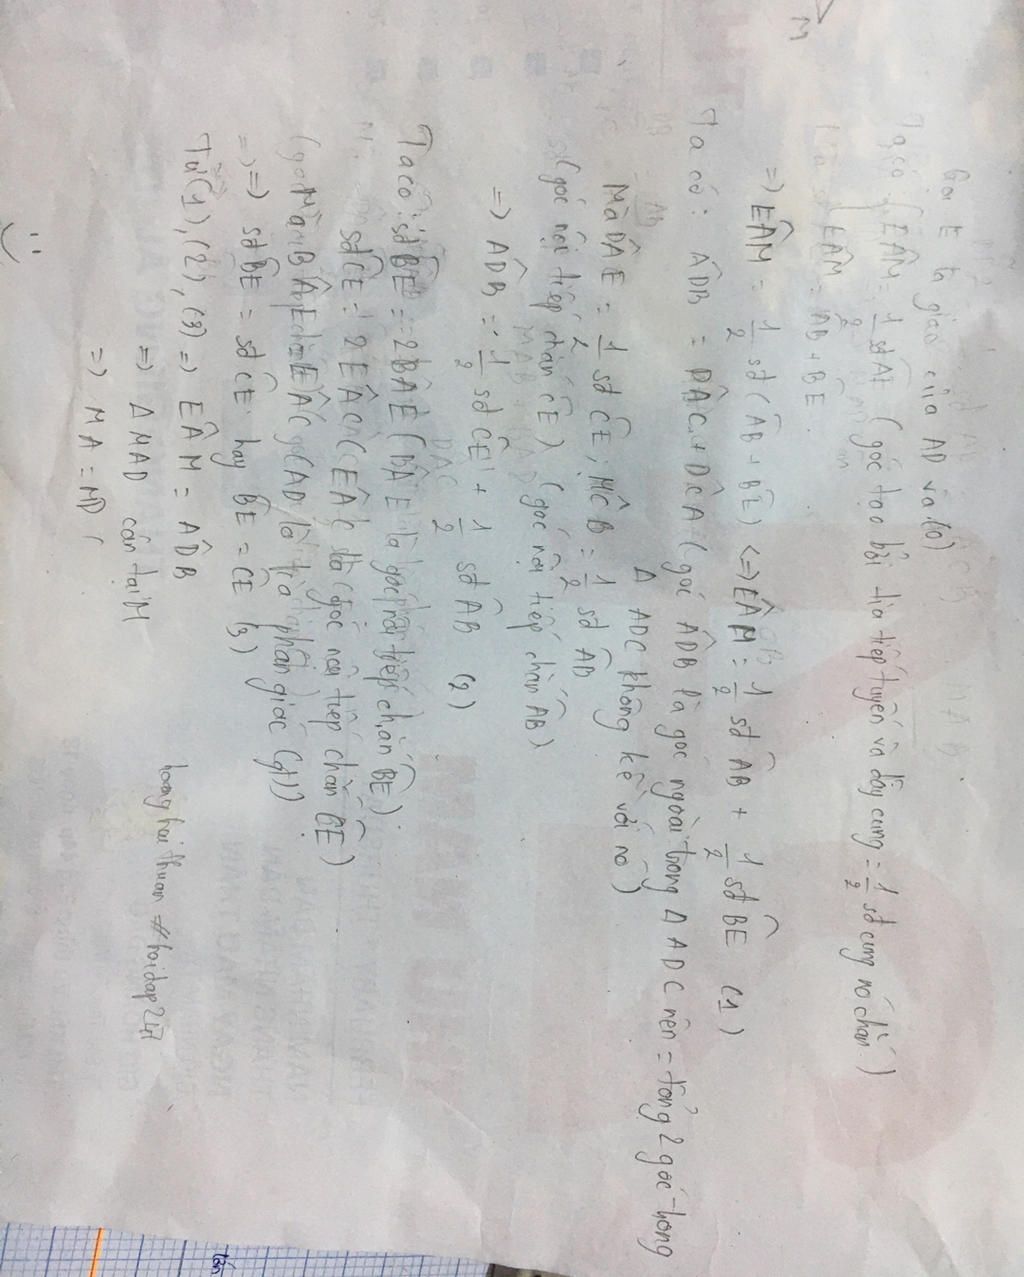 M
Gọi E là giao của AD và (O)
Ta có: { EÂM = 1/2 sđ AE (góc tạo bởi tia tiếp tuyến và dây cung = 1/2 sđ cung nó chắn.)
EÂM = AB + BE.
=> EÂM = 1/2 sđ (AB + BE) <=> EÂM = 1/2 sđ AB + 1/2 sđ BE (1)
Ta có: ADB = DÂC + DCA (góc ADB là góc ngoài trong Δ ADC nên = tổng 2 góc trong
Δ ADC không kề với nó)
Mà DÂE = 1/2 sđ CE, MCB = 1/2 sđ AB
(góc nội tiếp chắn CE) (góc nội tiếp chắn AB)
=> ADB = 1/2 sđ CE + 1/2 sđ AB (2)
Ta có: sđ BE = 2 BÂE (BÂE là góc nội tiếp chắn BE).
sđ CE = 2 EÂC (EÂC là góc nội tiếp chắn CE)
Mà BÂE = EÂC (AD là tia phân giác (gt))
=> sđ BE = sđ CE hay BE = CE (3)
Từ (1), (2), (3) => EÂM = ADB
=> Δ MAD cân tại M
=> MA = MD
hoanghaithuan #hoidap247